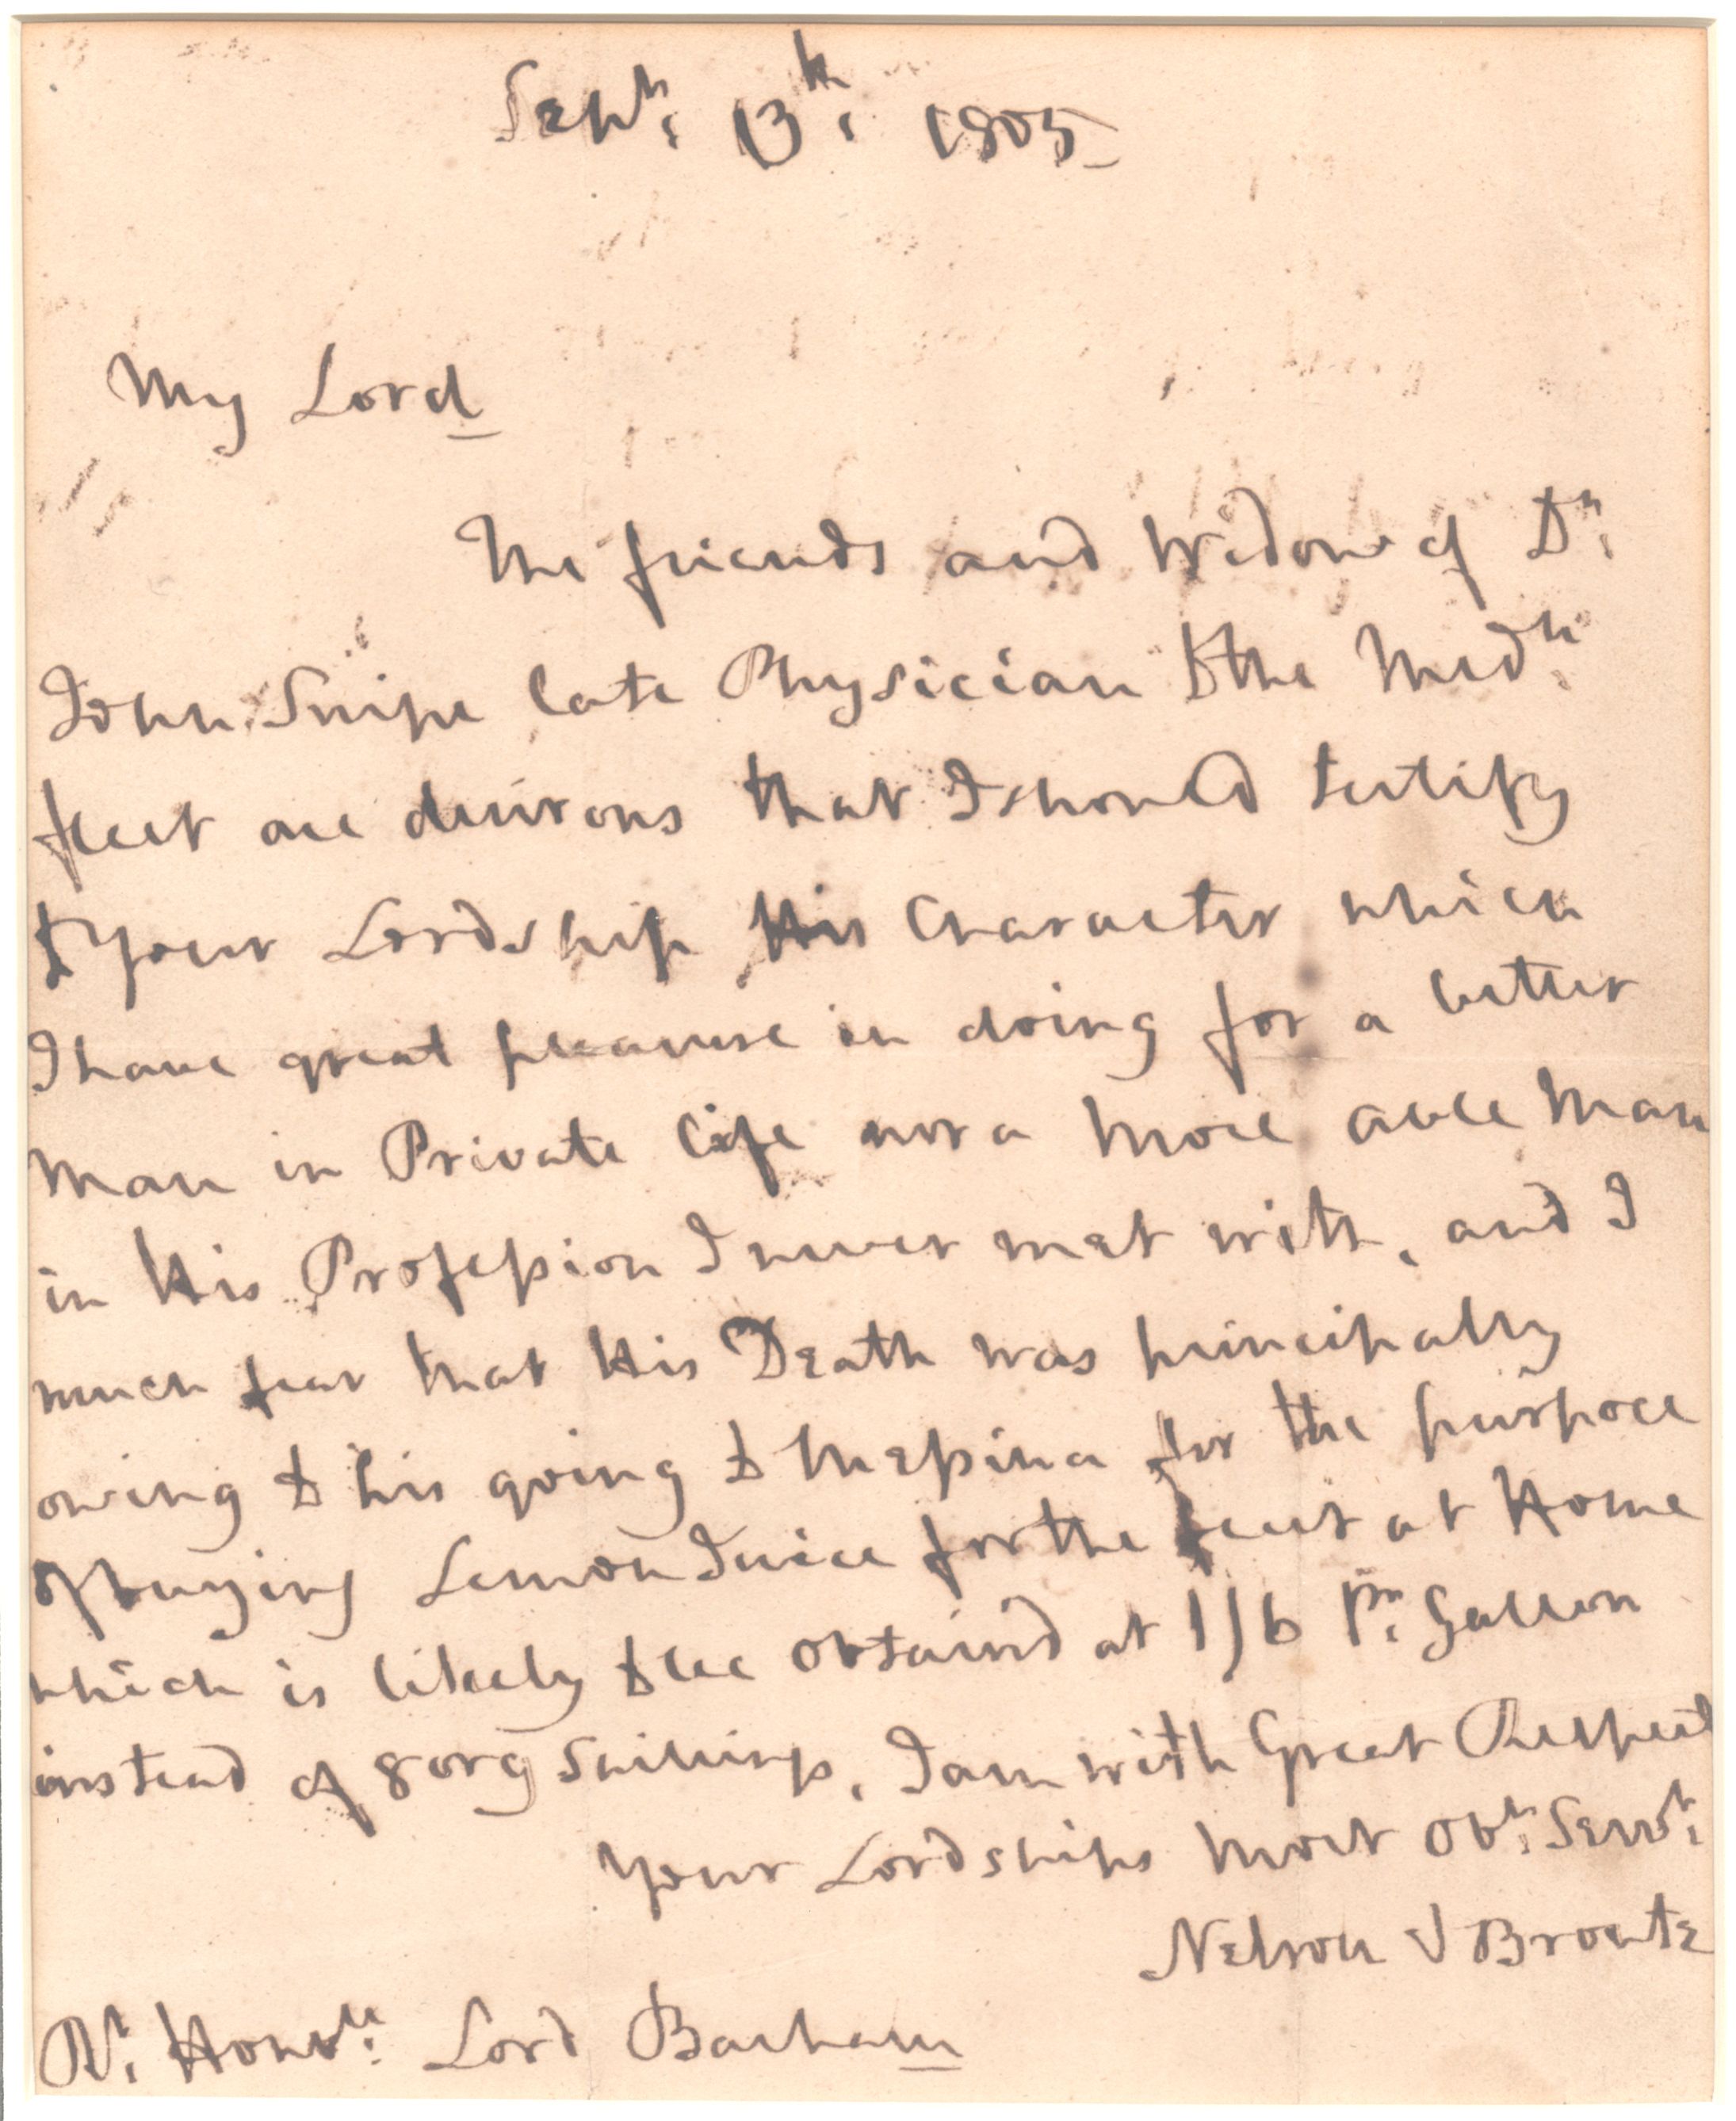 Sept: 13th: 1805
My Lord
The friends and Widow of Dr:
John Snipe late Physician to the Medn:
fleet are desirous that I should testify
to Your Lordship His Character which
I have great pleasure in doing for a better
Man in Private life nor a more able Man
in His Profession I never met with, and I
much fear that His Death was principally
owing to his going to Messina for the purpose
of buying Lemon Juice for the fleet at Home
which is likely to be obtain'd at 1/6 Pr: Gallon
instead of 8 or 9 Shillings, I am with Great Respect
Your Lordships most obt: Servt:
Nelson & Bronte
Rt: Honble: Lord Barham